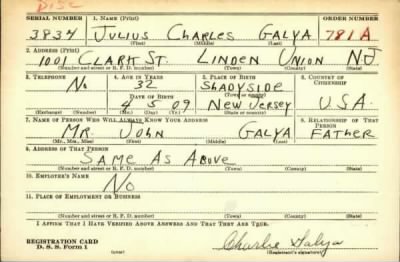 Disc
SERIAL NUMBER 1. NAME (Print) ORDER NUMBER
3834 JULIUS CHARLES GALYA 781A
(First) (Middle) (Last)
2. ADDRESS (Print)
1001 CLARK ST. LINDEN UNION N.J
(Number and street or R. F. D. number) (Town) (County) (State)
3. TELEPHONE 4. AGE IN YEARS 5. PLACE OF BIRTH 6. COUNTRY OF CITIZENSHIP
No 32 SHADYSIDE
DATE OF BIRTH (Town or county)
4 5 09 NEW JERSEY U.S.A.
(Mo.) (Day) (Yr.) (State or country)
7. NAME OF PERSON WHO WILL ALWAYS KNOW YOUR ADDRESS 8. RELATIONSHIP OF THAT PERSON
MR. JOHN GALYA FATHER
(Mr., Mrs., Miss) (First) (Middle) (Last)
9. ADDRESS OF THAT PERSON
SAME AS ABOVE
(Number and street or R. F. D. number) (Town) (County) (State)
10. EMPLOYER'S NAME
NO
11. PLACE OF EMPLOYMENT OR BUSINESS
(Number and street or R. F. D. number) (Town) (County) (State)
I AFFIRM THAT I HAVE VERIFIED ABOVE ANSWERS AND THAT THEY ARE TRUE.
REGISTRATION CARD
D. S. S. Form 1 (over) Charlie Galya
(Registrant's signature)